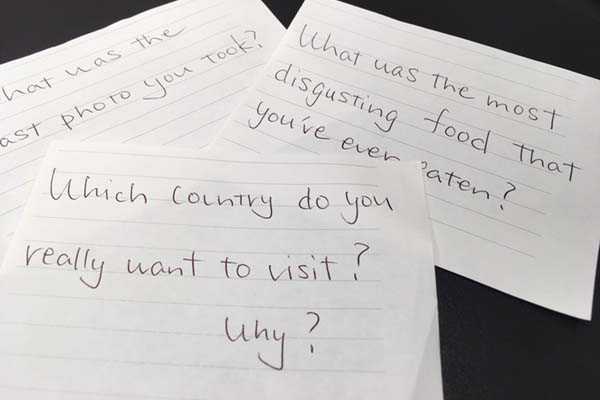 hat was the
ast photo you took?
What was the most
disgusting food that
you've ever eaten?
Which country do you
really want to visit?
Why?